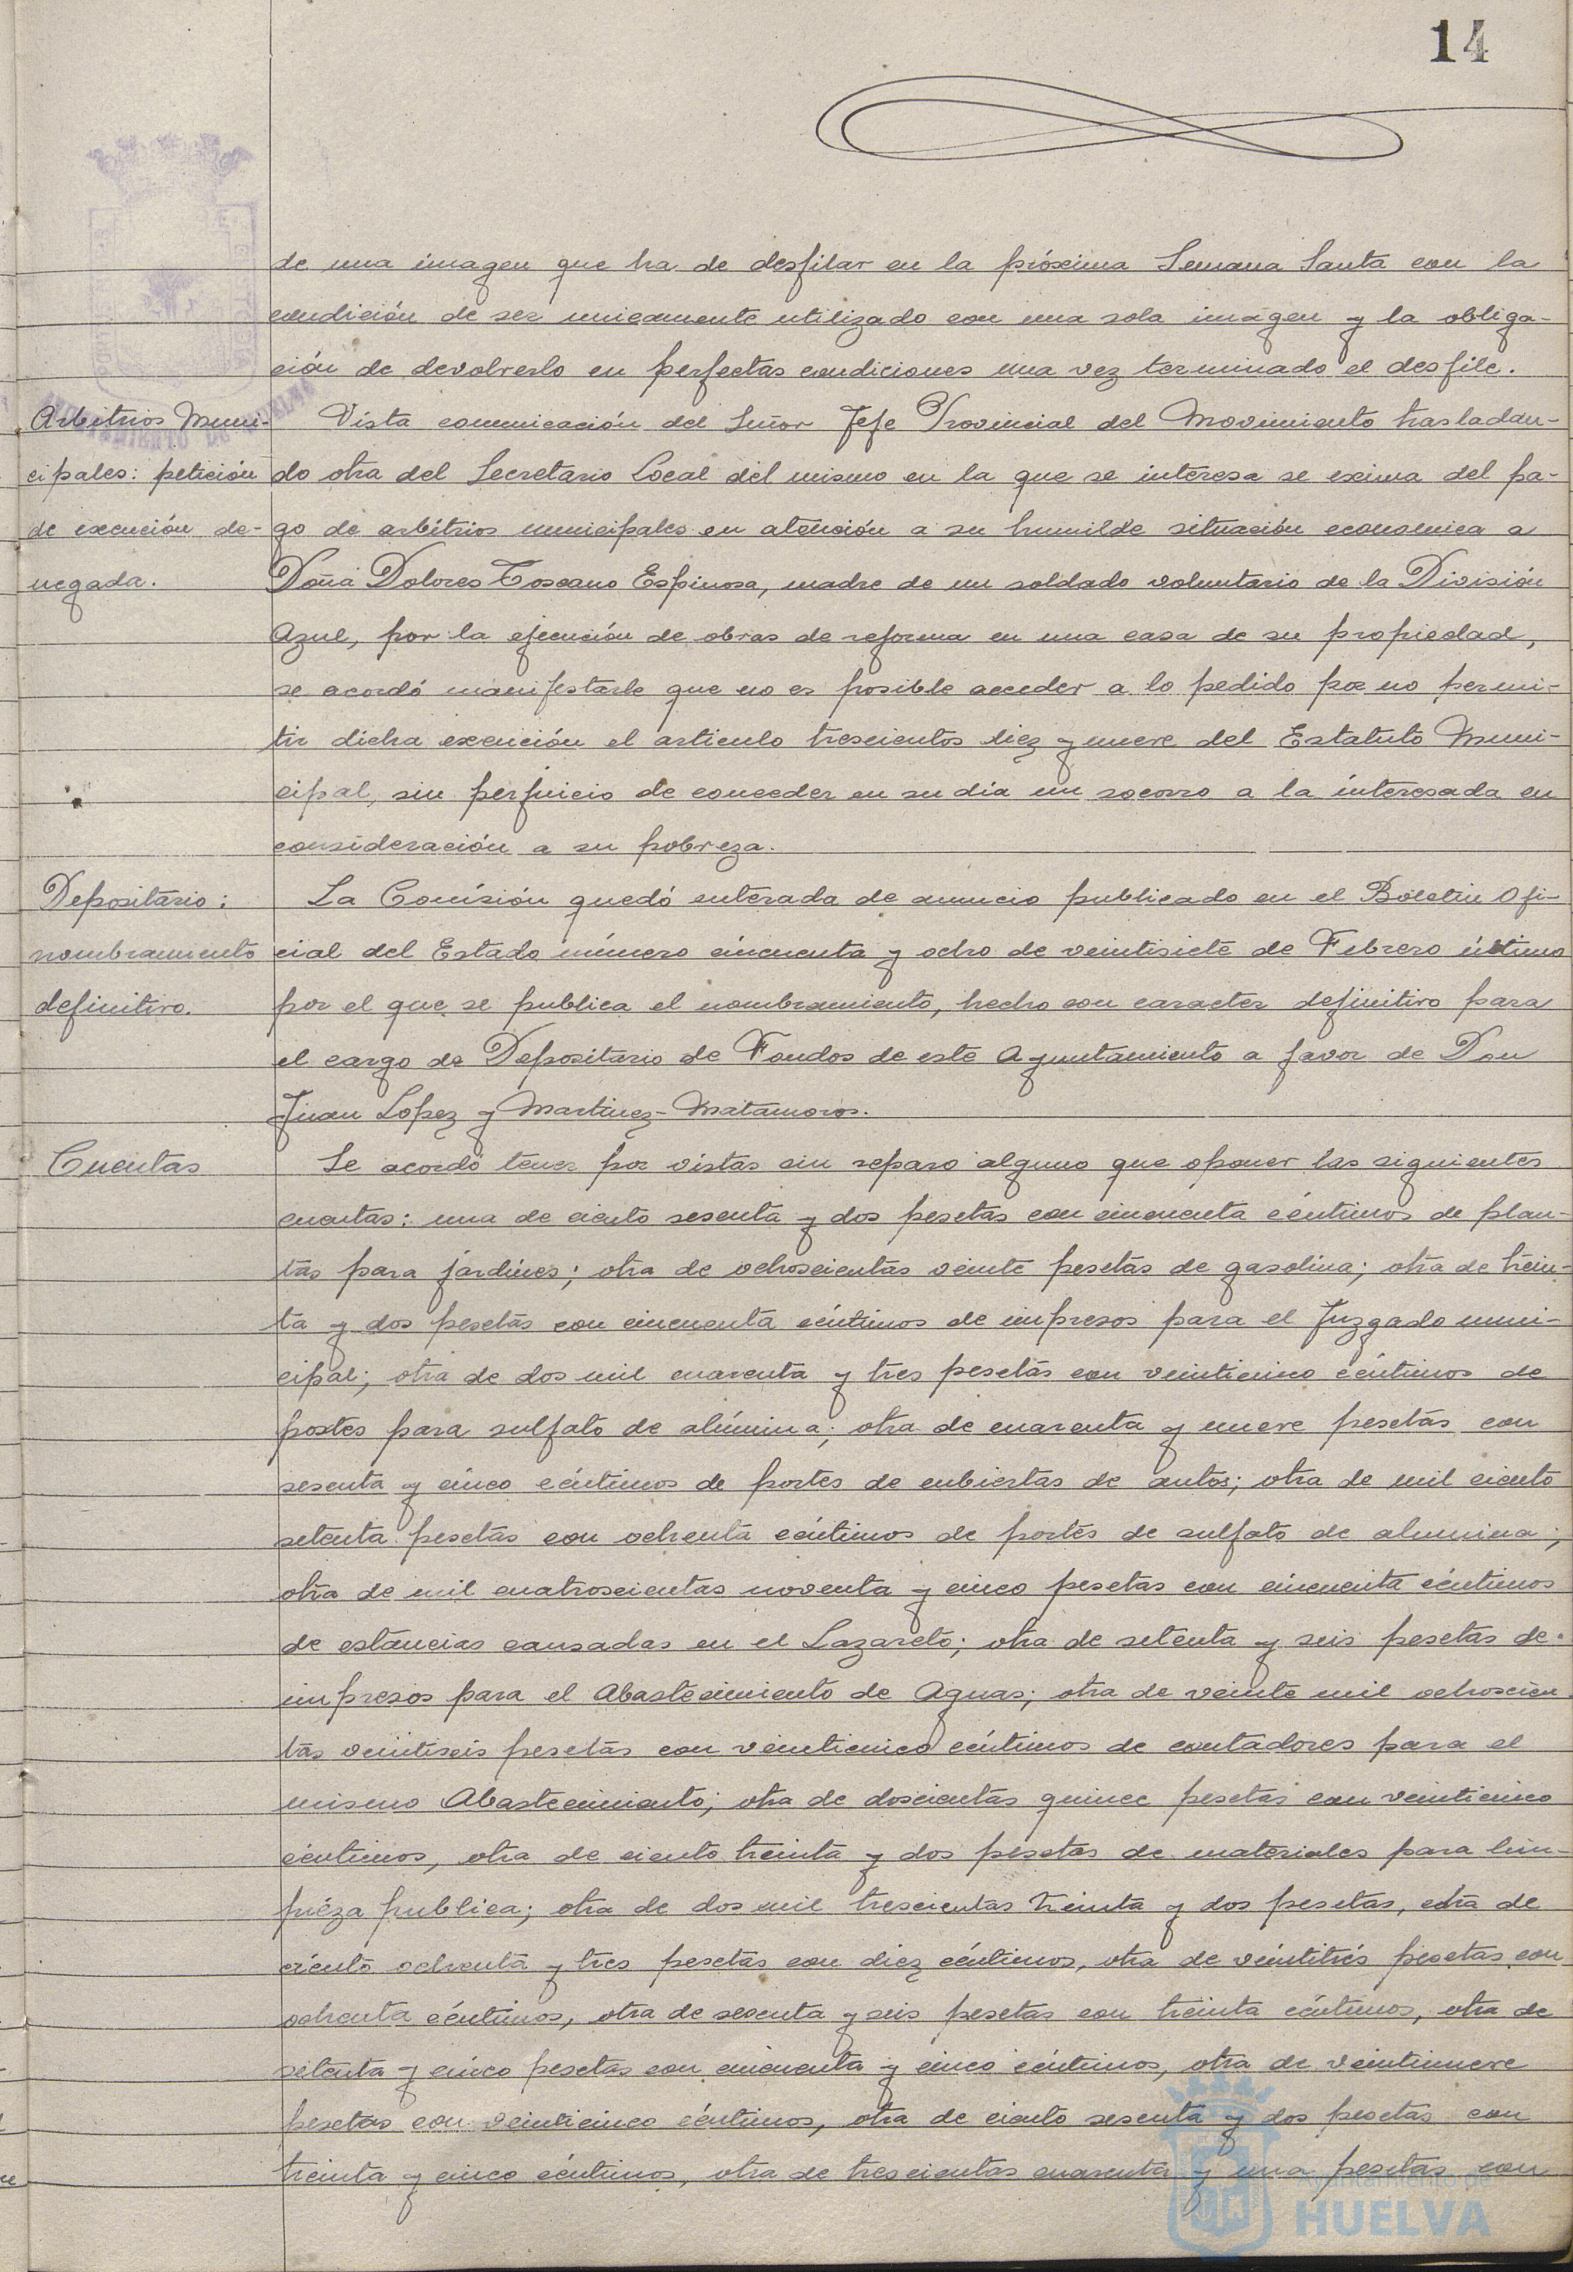 14
de una imagen que ha de desfilar en la próxima Semana Santa con la
condición de ser unicamente utilizado con una sola imagen y la obliga-
ción de devolverlo en perfectas condiciones una vez terminado el desfile.
Arbitrios Muni-
cipales: petición
de exención de-
negada.
Vista comunicación del Señor Jefe Provincial del Movimiento trasladan-
do otra del Secretario Local del mismo en la que se interesa se exima del pa-
go de arbitrios municipales en atención a su humilde situación economica a
Doña Dolores Toscano Espinosa, madre de un soldado voluntario de la División
Azul, por la ejecución de obras de reforma en una casa de su propiedad,
se acordó manifestarle que no es posible acceder a lo pedido por no permi-
tir dicha exención el articulo trescientos diez y nueve del Estatuto Muni-
cipal, sin perjuicio de conceder en su dia un socorro a la interesada en
consideración a su pobreza.
Depositario:
nombramiento
definitivo.
La Comisión quedó enterada de anuncio publicado en el Boletin Ofi-
cial del Estado número cincuenta y ocho de veintisiete de Febrero último
por el que se publica el nombramiento, hecho con caracter definitivo para
el cargo de Depositario de Fondos de este Ayuntamiento a favor de Don
Juan Lopez y Martinez-Matamoros.
Cuentas
Se acordó tener por vistas sin reparo alguno que oponer las siguientes
cuentas: una de ciento sesenta y dos pesetas con cincuenta céntimos de plan-
tas para jardines; otra de ochoscientas veinte pesetas de gasolina; otra de trein-
ta y dos pesetas con cincuenta céntimos de impresos para el Juzgado muni-
cipal; otra de dos mil cuarenta y tres pesetas con veinticinco céntimos de
portes para sulfato de alúmina; otra de cuarenta y nueve pesetas con
sesenta y cinco céntimos de portes de cubiertas de autos; otra de mil ciento
setenta pesetas con ochenta céntimos de portes de sulfato de alumina;
otra de mil cuatroscientas noventa y cinco pesetas con cincuenta céntimos
de estancias causadas en el Lazareto; otra de setenta y seis pesetas de
impresos para el Abastecimiento de Aguas; otra de veinte mil ochoscien
tas veintiseis pesetas con veinticinco céntimos de contadores para el
mismo Abastecimiento; otra de doscientas quince pesetas con veinticinco
céntimos, otra de ciento treinta y dos pesetas de materiales para lim-
piéza publica; otra de dos mil trescientas treinta y dos pesetas, otra de
ciento ochenta y tres pesetas con diez céntimos, otra de veintitrés pesetas con
ochenta céntimos, otra de sesenta y seis pesetas con treinta céntimos, otra de
setenta y cinco pesetas con cincuenta y cinco céntimos, otra de veintinueve
pesetas con veinticinco céntimos, otra de ciento sesenta y dos pesetas con
treinta y cinco céntimos, otra de trescientas cuarenta y una pesetas con
Ayuntamiento de
HUELVA